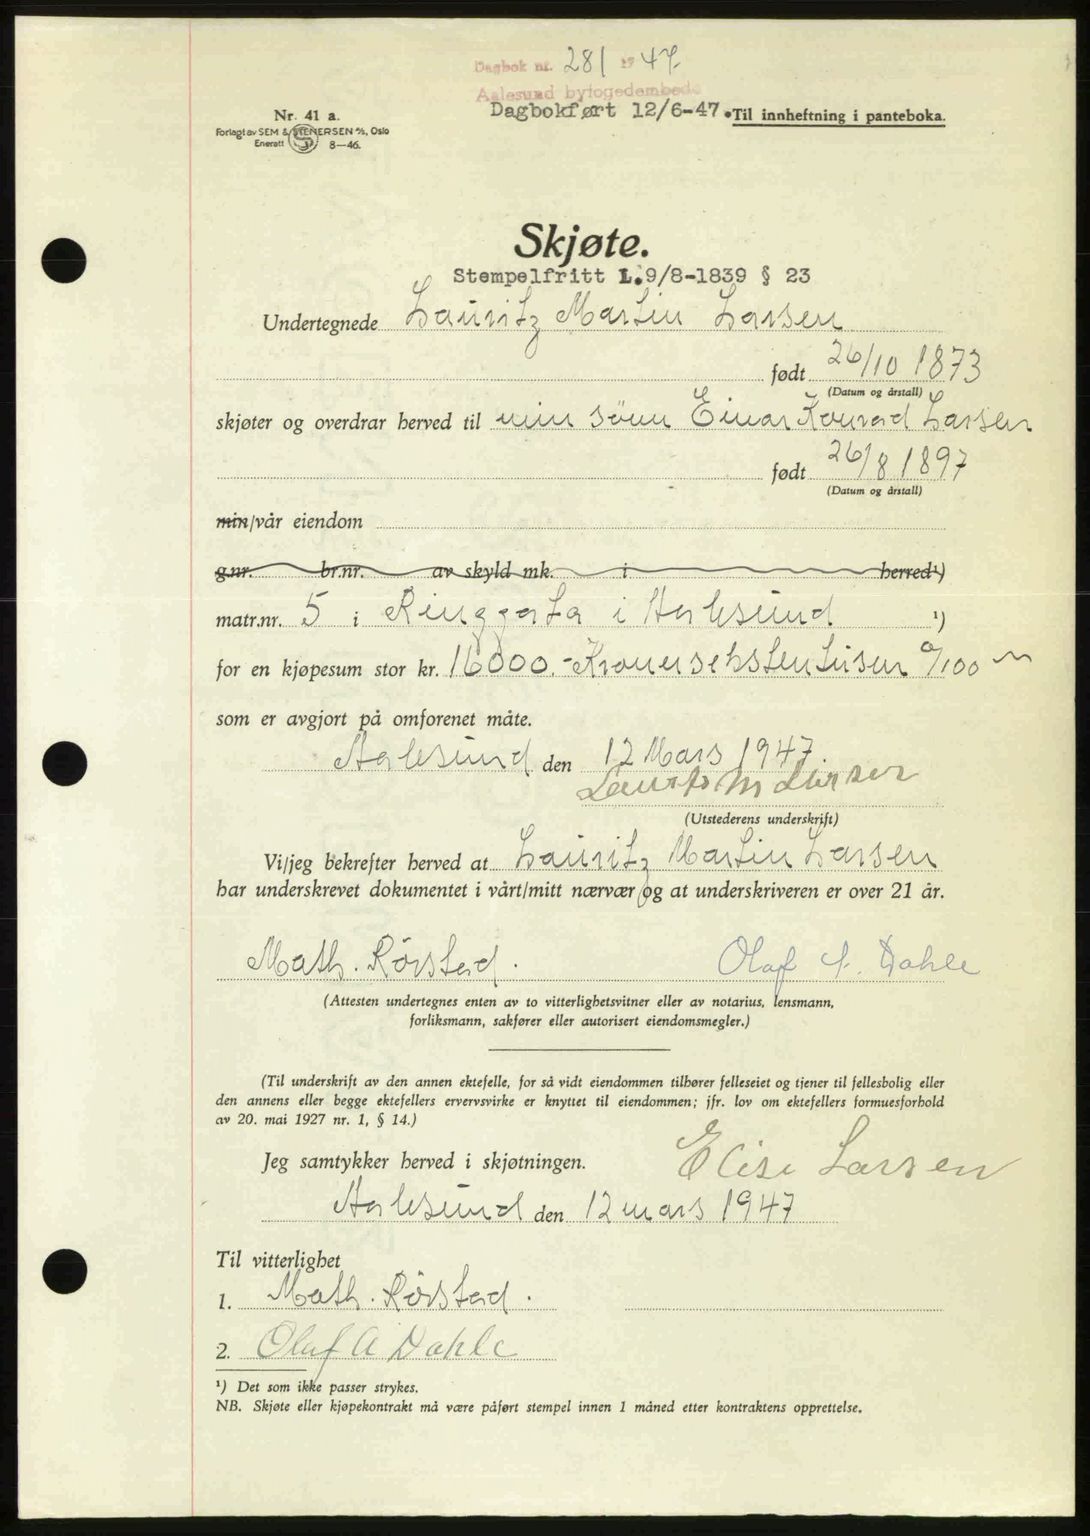 Dagbok nr. 281 1947.
Aalesund byfogedembede
Dagbokført 12/6-47. Til innheftning i panteboka.
Nr. 41 a.
Forlagt av SEM & STENERSEN A/S, Oslo
Enerett 8—46.
Skjøte.
Stempelfritt L.9/8-1839 § 23
Undertegnede Lauritz Martin Larsen
født 26/10 1873
(Datum og årstall)
skjøter og overdrar herved til min sönn Einar Konrad Larsen
født 26/8 1897
(Datum og årstall)
min/vår eiendom
g.nr. br.nr. av skyld mk. i herred¹)
matr.nr. 5 i Ringgata i Aalesund ¹)
for en kjøpesum stor kr. 16000.- Kroner sekstentusen 0/100
som er avgjort på omforenet måte.
Aalesund den 12 Mars 1947
Lauritz M Larsen
(Utstederens underskrift)
Vi/jeg bekrefter herved at Lauritz Martin Larsen
har underskrevet dokumentet i vårt/mitt nærvær og at underskriveren er over 21 år.
Math. Rörstad. Olaf A. Dahle
(Attesten undertegnes enten av to vitterlighetsvitner eller av notarius, lensmann,
forliksmann, sakfører eller autorisert eiendomsmegler.)
(Til underskrift av den annen ektefelle, for så vidt eiendommen tilhører felleseiet og tjener til fellesbolig eller
den annens eller begge ektefellers ervervsvirke er knyttet til eiendommen; jfr. lov om ektefellers formuesforhold
av 20. mai 1927 nr. 1, § 14.)
Jeg samtykker herved i skjøtningen. Elise Larsen
Aalesund den 12 mars 1947
Til vitterlighet
1. Math. Rörstad.
2. Olaf A Dahle
¹) Det som ikke passer strykes.
NB. Skjøte eller kjøpekontrakt må være påført stempel innen 1 måned etter kontraktens opprettelse.